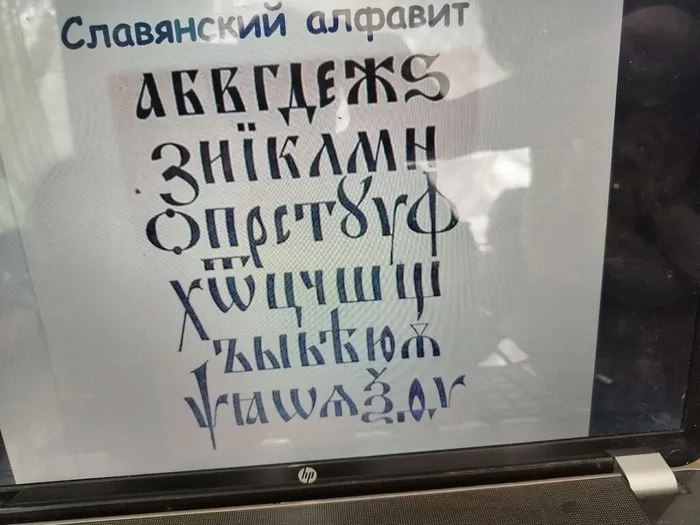 Славянский алфавит
АБВГДЕЖЅ
ЗИЇКЛМН
ОПРСТꙊУФ
ХѾЦЧШЩ
ЪЫЬѢЮѪ
ѰꙖѠѦѮѲѴ
hp